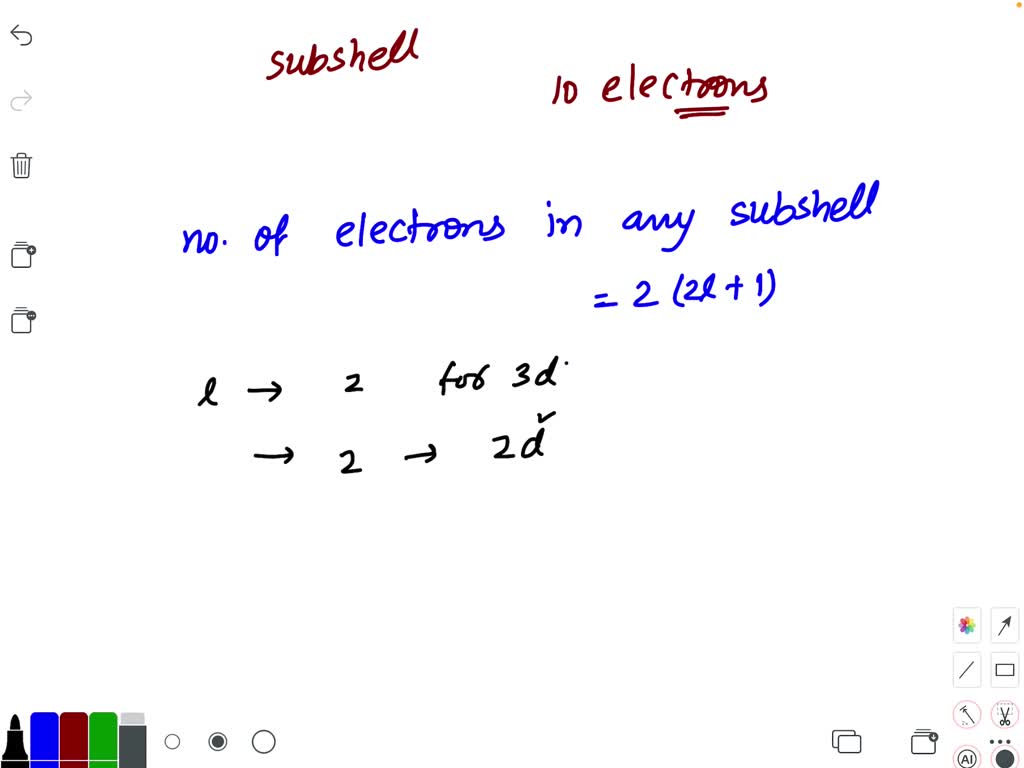 subshell
10 electrons
no. of electrons in any subshell
= 2 (2l + 1)
l → 2 for 3d
→ 2 → 2d
AI